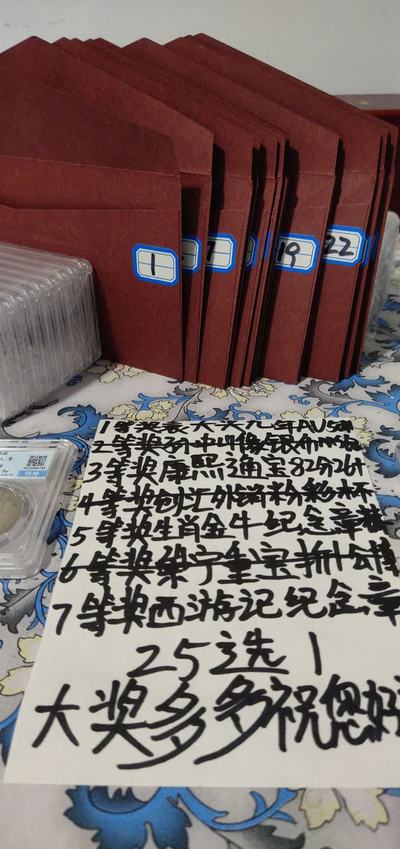 1
7
19
22
1等奖袁大头九年AU50
2等奖孙中山像银币MS62
3等奖康熙通宝82分26t
4等奖创汇外销粉彩杯
5等奖生肖金牛纪念章
6等奖崇宁重宝折十
7等奖西游记纪念章
25选1
大奖多多祝您好